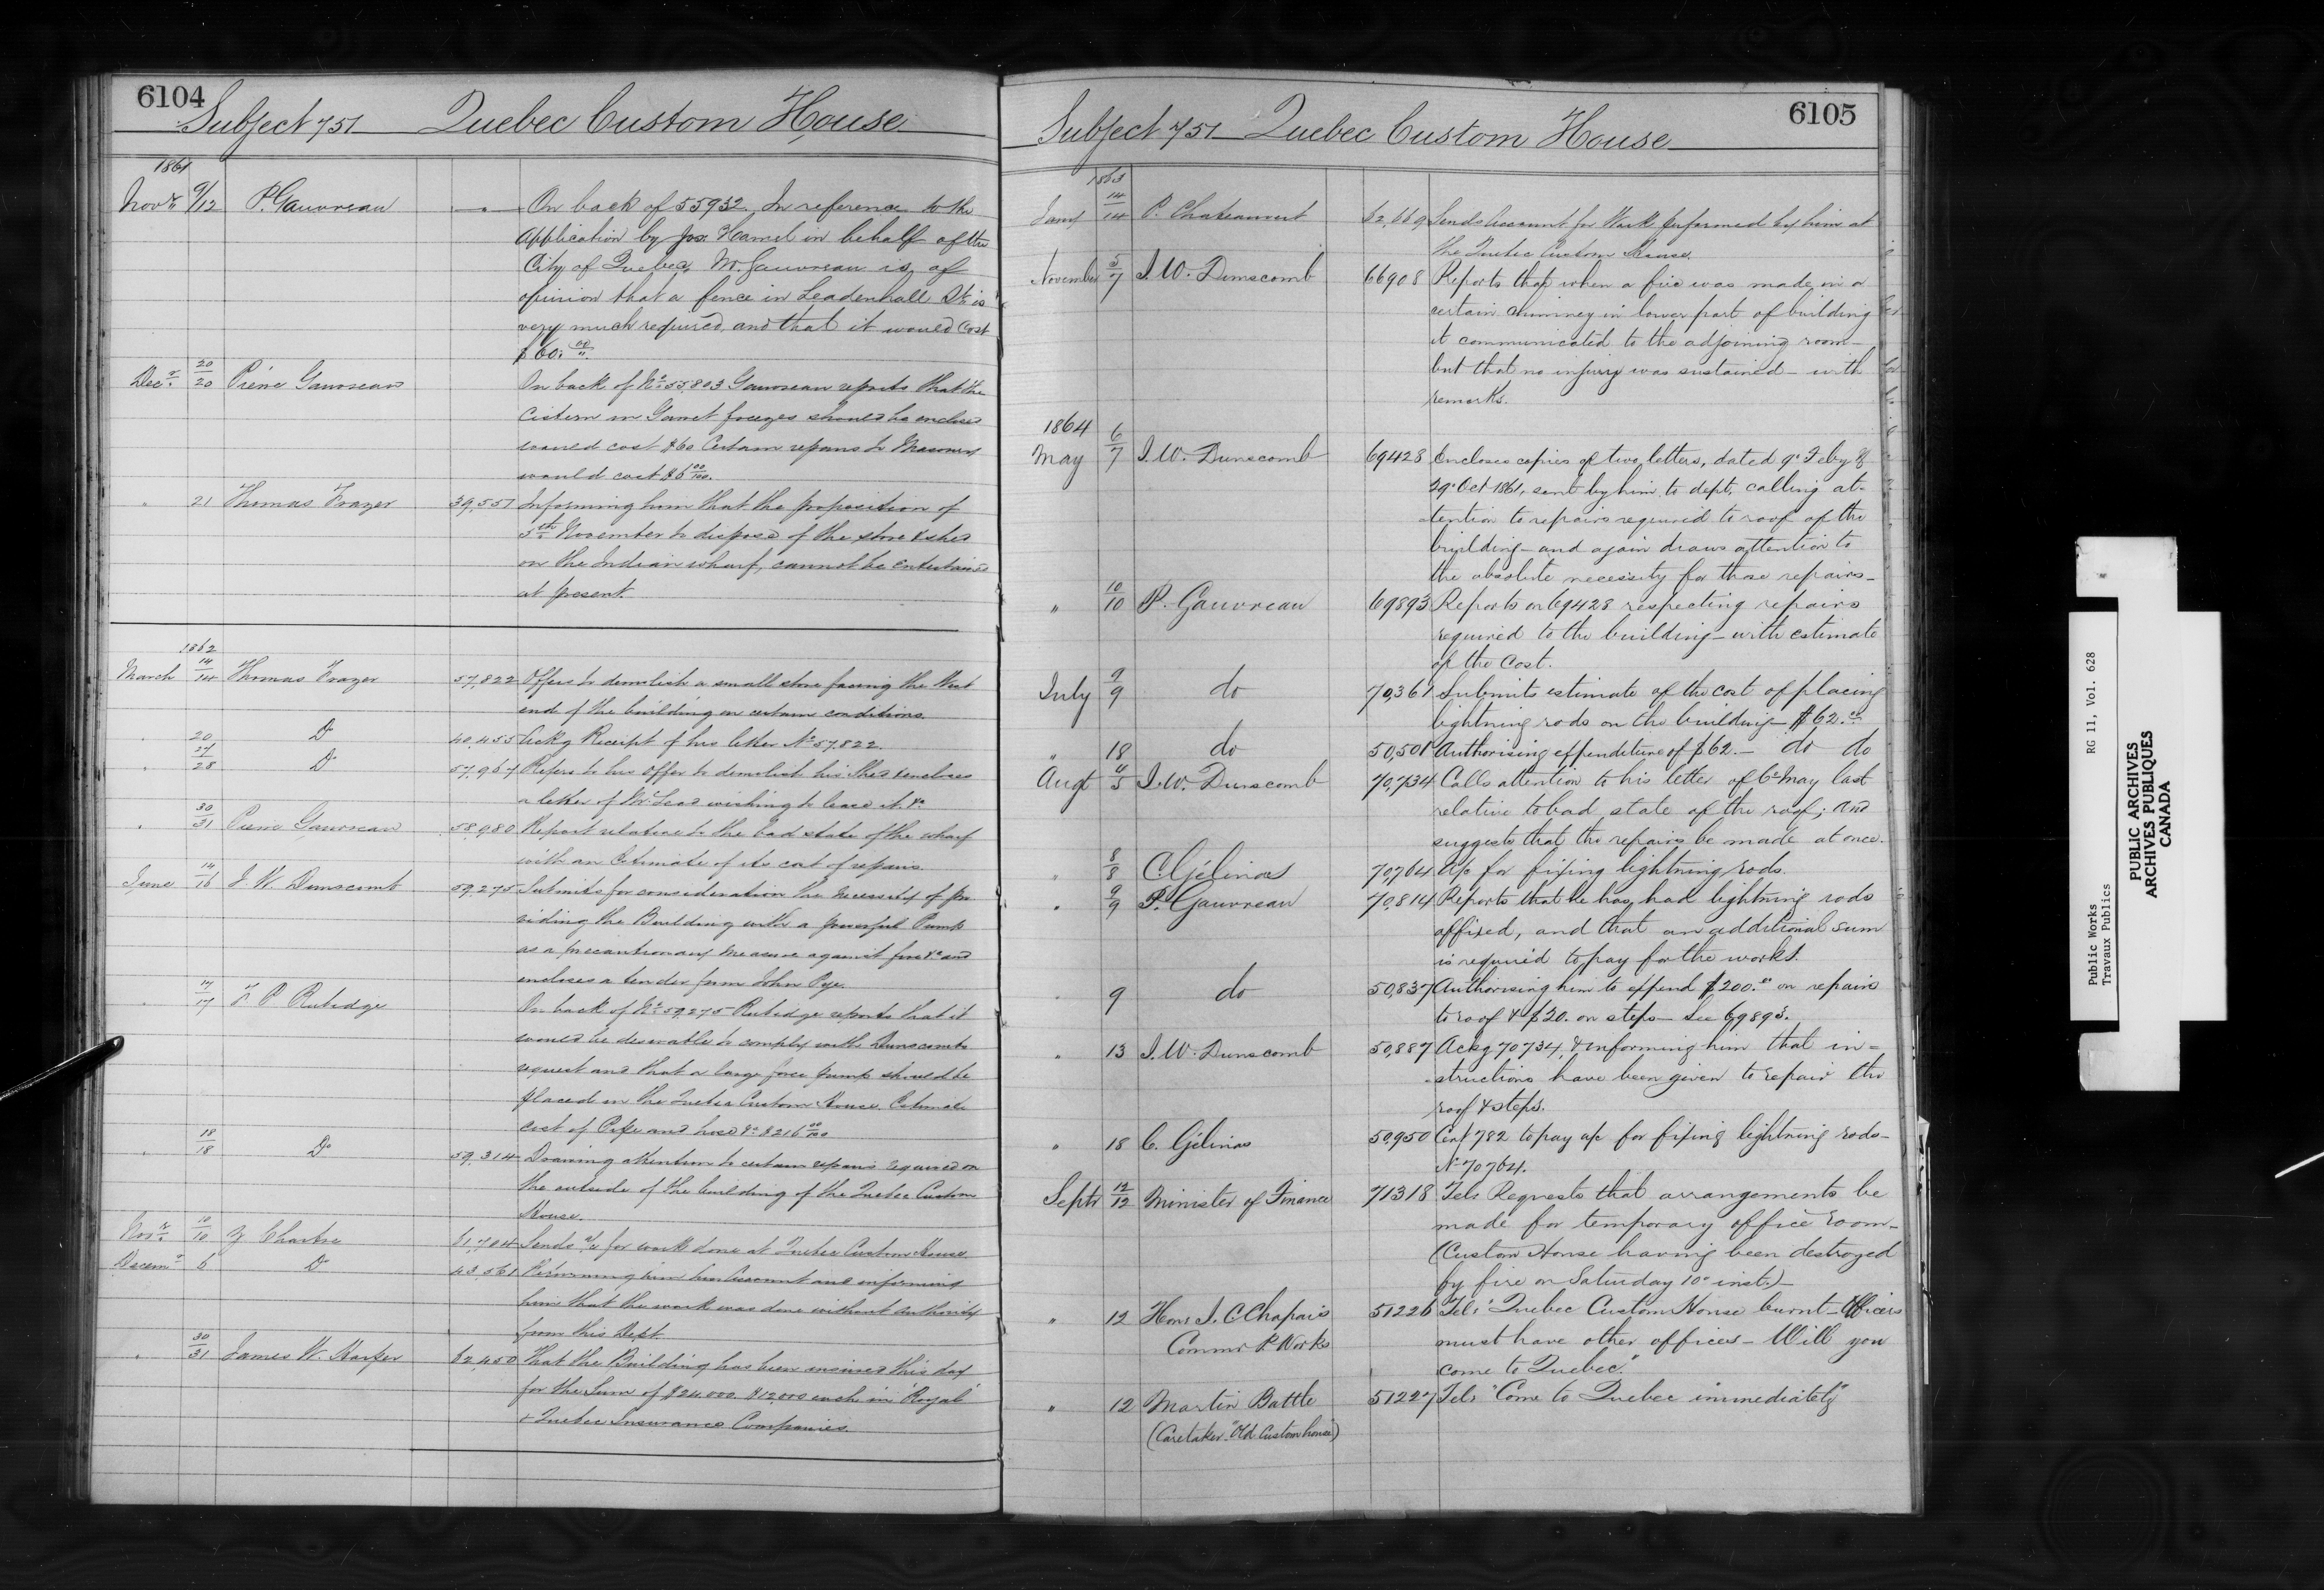 6104
Subject 751 Quebec Custom House
1861
Novr 9/12 P. Gauvreau — " — On back of 55932. In reference to the
Application by Jos. Hamel in behalf of the
City of Quebec, Mr. Gauvreau is of
opinion that a fence in Leadenhall St. is
very much required, and that it would cost
$60. 00
Decr. 20/20 Pierre Gauvreau On back of No. 55803 Gauvreau reports that the
Cistern in Garret freezes should be enclosed
would cost $60 Certain repairs to Masonry
would cost $6 00/100.
" 21 Thomas Frazer 39,551 Informing him that the proposition of
5th November to dispose of the store & shed
on the Indian wharf, cannot be entertained
at present.
1862
March 14/14 Thomas Frazer 57,822 Offers to demolish a small store facing the West
end of the building on certain conditions.
" 20 Do 40,455 Ackg Receipt of his letter No 57,822.
" 27/28 Do 57,967 Refers to his offer to demolish his shed encloses
a letter of Mr. wishing to lease it &c
" 30/31 Pierre Gauvreau 58,980 Report relative to the bad state of the wharf
with an Estimate of its cost of repairs.
June 14/16 J. W. Dunscomb 59,275 Submits for consideration the necessity of pro
viding the Building with a powerful Pump
as a precautionary measure against fire &c and
encloses a tender from John Pye.
" 17/17 F. P. Rubidge On back of No 59,275 Rubidge reports that it
would be desirable to comply with Dunscombs
request and that a large force pump should be
placed in the Quebec Custom House. Estimate
cost of Pipe and hose &c $216 00/100
" 18/18 Do 59,314 Drawing attention to certain repairs required on
the outside of the building of the Quebec Custom
House.
Novr. 10/10 Z Chartré 61,704 Sends a/c for work done at Quebec Custom House
Decemr 6 Do 43,561 Returning him his Account and informing
him that the work was done without authority
from this Dept.
" 30/31 James W. Harper 62,450 That the Building has been insured this day
for the Sum of $24,000. $12,000 each in "Royal"
& Quebec Insurance Companies.
6105
Subject 751 Quebec Custom House
1863
Jany 14/14 P. Chateauvert 62,669 Sends Account for Work performed by him at
the Quebec Custom House.
November 5/7 J. W. Dunscomb 66908 Reports that when a fire was made in a
certain chimney in lower part of building
it communicated to the adjoining room—
but that no injury was sustained— with
remarks.
1864
May 6/7 J. W. Dunscomb 69428 Encloses copies of two letters, dated 9 Feby &
29 Oct 1861, sent by him to dept. calling at-
tention to repairs required to roof of the
building— and again draws attention to
the absolute necessity for those repairs—
" 10/10 P. Gauvreau 69893 Reports on 69428 respecting repairs
required to the building— with estimate
of the cost.
July 9/9 do 70,361 Submits estimate of the cost of placing
lightning rods on the building— $62.00
" 18 do 50,501 Authorising expenditure of $62.— do do
Augt 4/5 J. W. Dunscomb 70,734 Calls attention to his letter of 6 May last
relative to bad state of the roof; and
suggests that the repairs be made at once.
" 8/8 C Gélinas 70,764 A/c for fixing lightning rods.
" 9/9 P. Gauvreau 70,814 Reports that he has had lightning rods
affixed, and that an additional sum
is required to pay for the works.
" 9 do 50,837 Authorising him to expend $200.00 on repairs
to roof & $20. on steps— See 69893.
" 13 J. W. Dunscomb 50,887 Ackg 70,734, & informing him that in=
structions have been given to repair the
roof & steps.
" 18 C. Gélinas 50,950 Cert 782 to pay a/c for fixing lightning rods—
No 70764.
Septr 12/12 Minister of Finance 71318 Tel: Requests that arrangements be
made for temporary office room—
(Custom House having been destroyed
by fire on Saturday 10 inst.)—
" 12 Hon. J. C Chapais 51226 Tel: "Quebec Custom House burnt— Officers
Commr P. Works must have other offices— Will you
come to Quebec."
" 12 Martin Battle 51227 Tel: "Come to Quebec immediately"
(Caretaker "Old Custom house")
Public Works RG 11, Vol. 628
Travaux Publics
PUBLIC ARCHIVES
ARCHIVES PUBLIQUES
CANADA